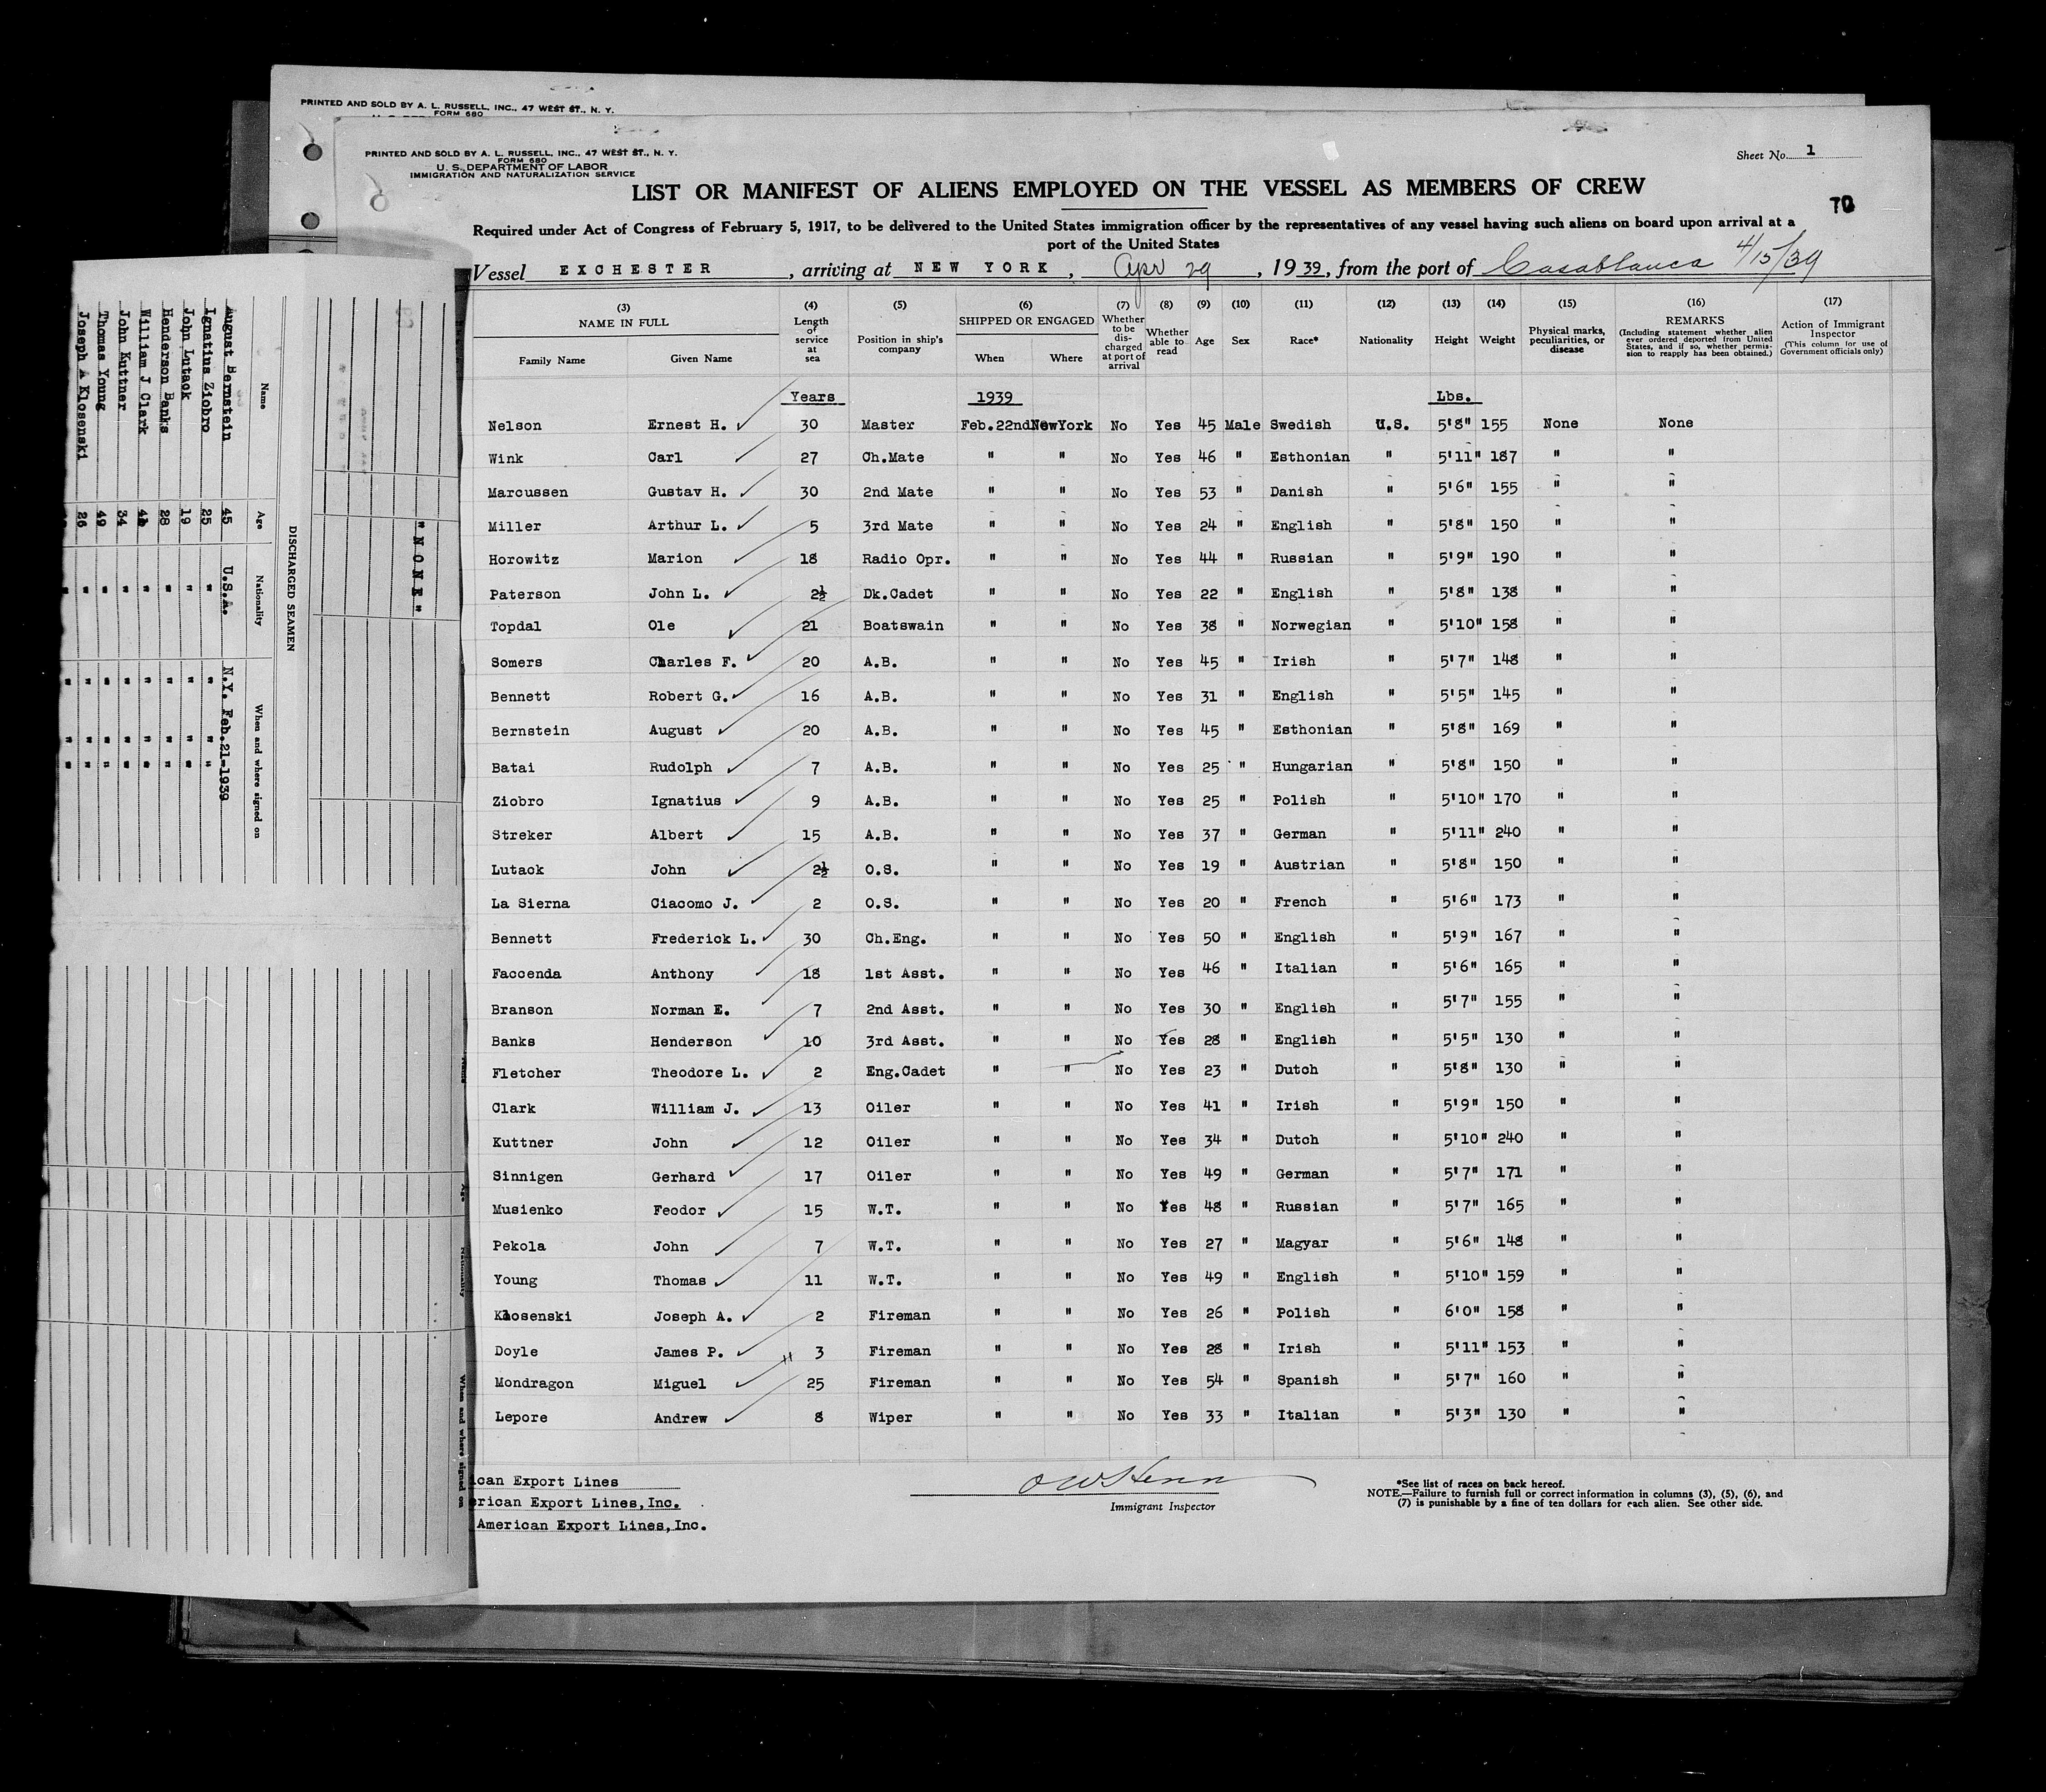 PRINTED AND SOLD BY A. L. RUSSELL, INC., 47 WEST ST., N. Y.
FORM 680
PRINTED AND SOLD BY A. L. RUSSELL, INC., 47 WEST ST., N. Y.
FORM 680
U. S. DEPARTMENT OF LABOR
IMMIGRATION AND NATURALIZATION SERVICE
Sheet No. 1
LIST OR MANIFEST OF ALIENS EMPLOYED ON THE VESSEL AS MEMBERS OF CREW
70
Required under Act of Congress of February 5, 1917, to be delivered to the United States immigration officer by the representatives of any vessel having such aliens on board upon arrival at a
port of the United States
Vessel EXCHESTER, arriving at NEW YORK, Apr 29, 1939, from the port of Casablanca 4/15/39
(3) (4) (5) (6) (7) (8) (9) (10) (11) (12) (13) (14) (15) (16) (17)
NAME IN FULL Family Name Given Name
Length of service at sea
Position in ship's company
SHIPPED OR ENGAGED When Where
Whether to be discharged at port of arrival
Whether able to read
Age Sex Race* Nationality Height Weight
Physical marks, peculiarities, or disease
REMARKS (Including statement whether alien ever ordered deported from United States, and if so, whether permission to reapply has been obtained.)
Action of Immigrant Inspector (This column for use of Government officials only)
Years 1939 Lbs.
Nelson Ernest H. 30 Master Feb.22nd NewYork No Yes 45 Male Swedish U.S. 5'8" 155 None None
Wink Carl 27 Ch.Mate " " No Yes 46 " Esthonian " 5'11" 187 " "
Marcussen Gustav H. 30 2nd Mate " " No Yes 53 " Danish " 5'6" 155 " "
Miller Arthur L. 5 3rd Mate " " No Yes 24 " English " 5'8" 150 " "
Horowitz Marion 18 Radio Opr. " " No Yes 44 " Russian " 5'9" 190 " "
Paterson John L. 2½ Dk.Cadet " " No Yes 22 " English " 5'8" 138 " "
Topdal Ole 21 Boatswain " " No Yes 38 " Norwegian " 5'10" 158 " "
Somers Charles F. 20 A.B. " " No Yes 45 " Irish " 5'7" 148 " "
Bennett Robert G. 16 A.B. " " No Yes 31 " English " 5'5" 145 " "
Bernstein August 20 A.B. " " No Yes 45 " Esthonian " 5'8" 169 " "
Batai Rudolph 7 A.B. " " No Yes 25 " Hungarian " 5'8" 150 " "
Ziobro Ignatius 9 A.B. " " No Yes 25 " Polish " 5'10" 170 " "
Streker Albert 15 A.B. " " No Yes 37 " German " 5'11" 240 " "
Lutack John 2½ O.S. " " No Yes 19 " Austrian " 5'8" 150 " "
La Sierna Ciacomo J. 2 O.S. " " No Yes 20 " French " 5'6" 173 " "
Bennett Frederick L. 30 Ch.Eng. " " No Yes 50 " English " 5'9" 167 " "
Faccenda Anthony 18 1st Asst. " " No Yes 46 " Italian " 5'6" 165 " "
Branson Norman E. 7 2nd Asst. " " No Yes 30 " English " 5'7" 155 " "
Banks Henderson 10 3rd Asst. " " No Yes 28 " English " 5'5" 130 " "
Fletcher Theodore L. 2 Eng.Cadet " " No Yes 23 " Dutch " 5'8" 130 " "
Clark William J. 13 Oiler " " No Yes 41 " Irish " 5'9" 150 " "
Kuttner John 12 Oiler " " No Yes 34 " Dutch " 5'10" 240 " "
Sinnigen Gerhard 17 Oiler " " No Yes 49 " German " 5'7" 171 " "
Musienko Feodor 15 W.T. " " No Yes 48 " Russian " 5'7" 165 " "
Pekola John 7 W.T. " " No Yes 27 " Magyar " 5'6" 148 " "
Young Thomas 11 W.T. " " No Yes 49 " English " 5'10" 159 " "
Klosenski Joseph A. 2 Fireman " " No Yes 26 " Polish " 6'0" 158 " "
Doyle James P. 3 Fireman " " No Yes 28 " Irish " 5'11" 153 " "
Mondragon Miguel 25 Fireman " " No Yes 54 " Spanish " 5'7" 160 " "
Lepore Andrew 8 Wiper " " No Yes 33 " Italian " 5'3" 130 " "
ican Export Lines
erican Export Lines,Inc.
American Export Lines,Inc.
Immigrant Inspector
*See list of races on back hereof.
NOTE.—Failure to furnish full or correct information in columns (3), (5), (6), and
(7) is punishable by a fine of ten dollars for each alien. See other side.
"NONE"
DISCHARGED SEAMEN
Name Age Nationality When and where signed on
August Bernstein 45 U.S.A. N.Y. Feb.21-1939
Ignatius Ziobro 25 " " " "
John Lutack 19 " " " "
Henderson Banks 28 " " " "
William J Clark 41 " " " "
John Kuttner 34 " " " "
Thomas Young 49 " " " "
Joseph A Klosenski 26 " " " "